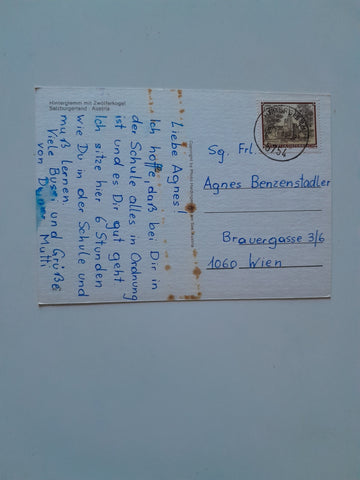 Hinterglemm mit Zwölferkogel
Salzburgerland · Austria
Liebe Agnes!
Ich hoffe, daß bei Dir in
der Schule alles in Ordnung
ist und es Dir gut geht.
Ich sitze hier 6 Stunden
wie Du in der Schule und
muß lernen.
Viele Bussi und Grüße
von Deiner Mutti
Copyright by
5754
Sg. Frl.
Agnes Benzenstadler
Brauergasse 3/6
1060 Wien